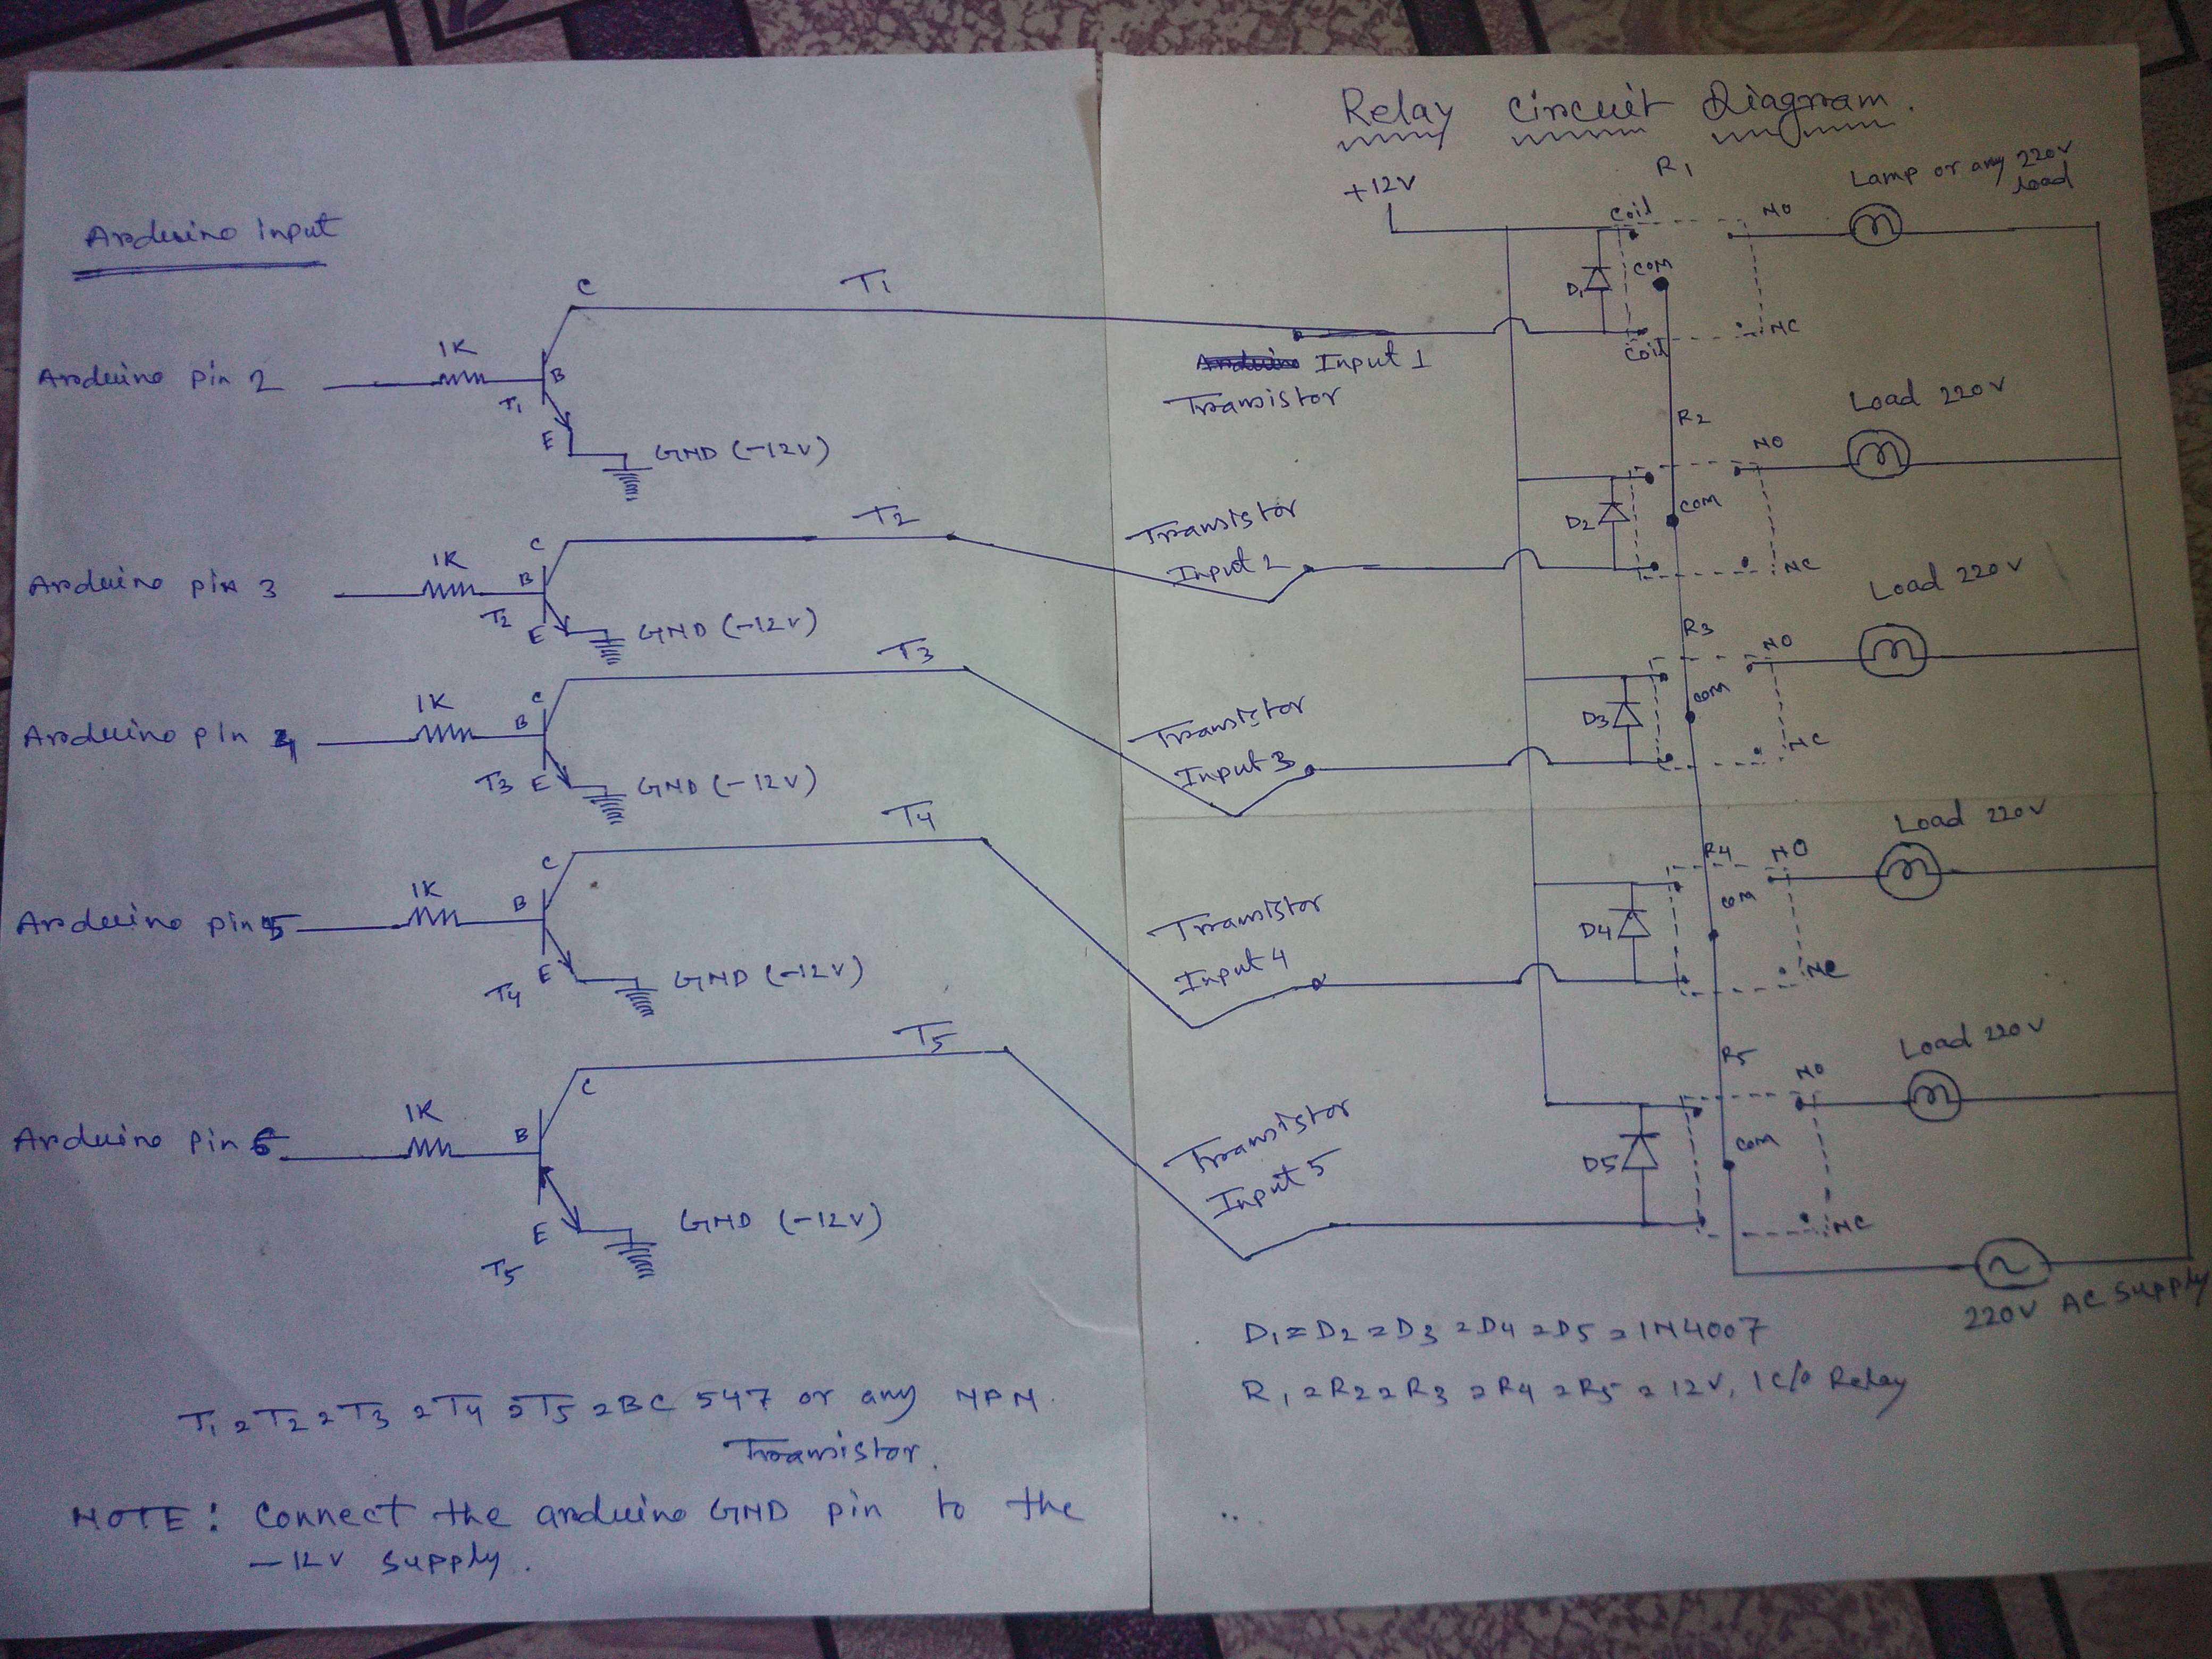 Relay Circuit Diagram.
Arduino input
Arduino pin 2
1K
B
C
E
T1
T1
GND (-12V)
Arduino pin 3
1K
B
C
E
T2
T2
GND (-12V)
Arduino pin 4
1K
B
C
E
T3
T3
GND (-12V)
Arduino pin 5
1K
B
C
E
T4
T4
GND (-12V)
Arduino pin 6
1K
B
C
E
T5
T5
GND (-12V)
T1 = T2 = T3 = T4 = T5 = BC 547 or any NPN
Transistor.
NOTE: Connect the arduino GND pin to the
-12V supply.
+12V
R1
Lamp or any 220V
load
Coil
NO
D1
COM
Coil
NC
Input 1
Transistor
R2
Load 220V
NO
Transistor
Input 2
D2
COM
NC
R3
Load 220V
NO
Transistor
Input 3
D3
COM
NC
R4
Load 220V
NO
Transistor
Input 4
D4
COM
NC
R5
Load 220V
NO
Transistor
Input 5
D5
COM
NC
220V AC Supply
D1 = D2 = D3 = D4 = D5 = 1N4007
R1 = R2 = R3 = R4 = R5 = 12V, 1 C/O Relay